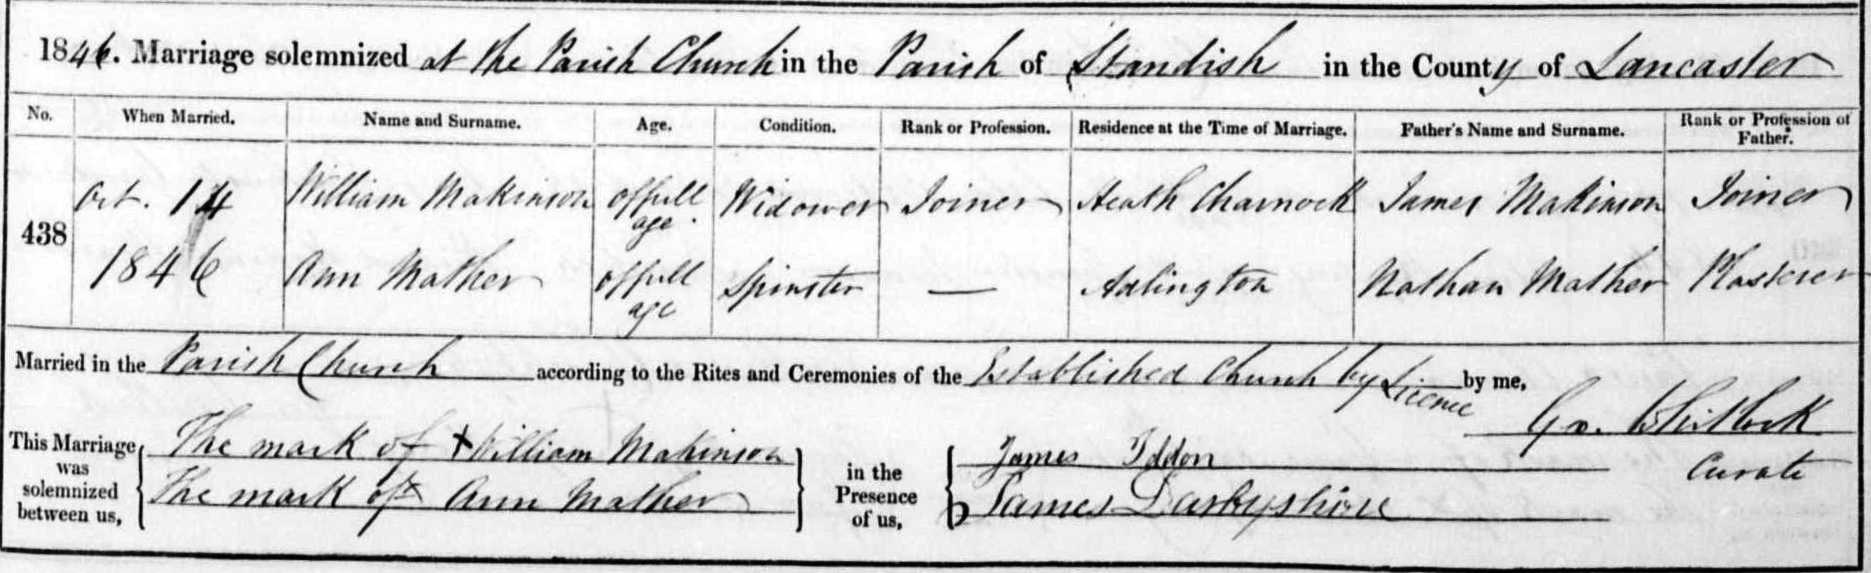 1846. Marriage solemnized at the Parish Church in the Parish of Standish in the County of Lancaster
No. When Married. Name and Surname. Age. Condition. Rank or Profession. Residence at the Time of Marriage. Father's Name and Surname. Rank or Profession of Father.
438 Oct. 14 1846 William Makinson of full age. Widower Joiner Heath Charnock James Makinson Joiner
Ann Mather of full age Spinster — Adlington Nathan Mather Plasterer
Married in the Parish Church according to the Rites and Ceremonies of the Established Church by Licence by me,
Geo. Whitlock
Curate
This Marriage was solemnized between us, The mark of x William Makinson in the Presence of us, James Iddon
The mark of x Ann Mather James Darbyshire